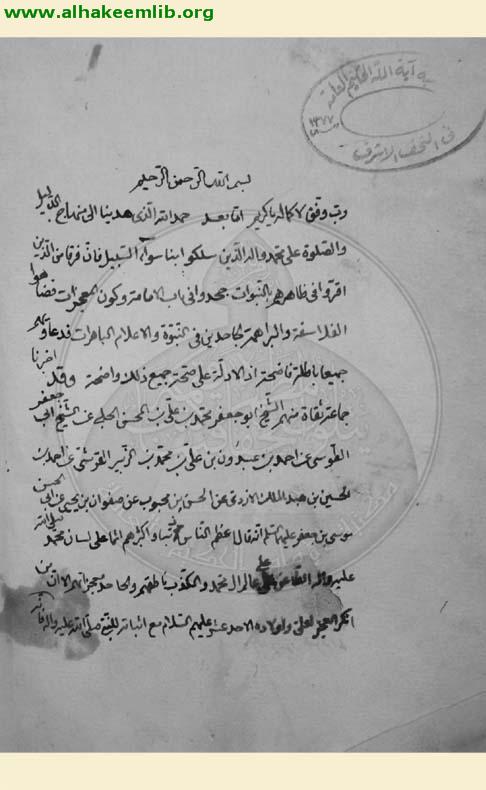 www.alhakeemlib.org
مكتبة آية الله الحكيم العامة
١٣٧٧
في النجف الاشرف
بسم الله الرحمن الرحيم
رب وفق لاكماله يا كريم اما بعد حمد الله الذي هدينا الى منهاج الدليل
والصلوة على محمد واله الذين سلكوا بنا سواء السبيل فان فرقا من الذين
اقروا في ظاهرهم بالنبوات جحدوا في باب الامامة وكون المعجزات فضاهوا
الفلاسفة والبراهمة الجاحدين في النبوة والاعلام الباهرات فدعاويهم
جميعا باطلة فاضحة اذ الادلة على صحة جميع ذلك واضحة وقد اخبرنا
جماعة ثقاة منهم الشيخ ابو جعفر محمد بن علي بن الحسن الحلبي عن الشيخ ابي جعفر
الطوسي عن احمد بن عبدون بن علي بن محمد بن الزبير القرشي عن احمد بن
الحسين بن عبد الملك الازدي عن الحسن بن محبوب عن صفوان بن يحيى عن ابي الحسن
موسى بن جعفر عليهما السلام انه قال اعظم الناس ذنبا واكبرهم اثما على لسان محمد صلى الله
عليه واله الطاعن على عالم ال محمد والمكذب ناطقهم والجاحد معجزاتهم الا ان من
انكر المعجز لعلي واولاده الاحد عشر عليهم السلام مع اثباته للنبي صلى الله عليه واله فانه